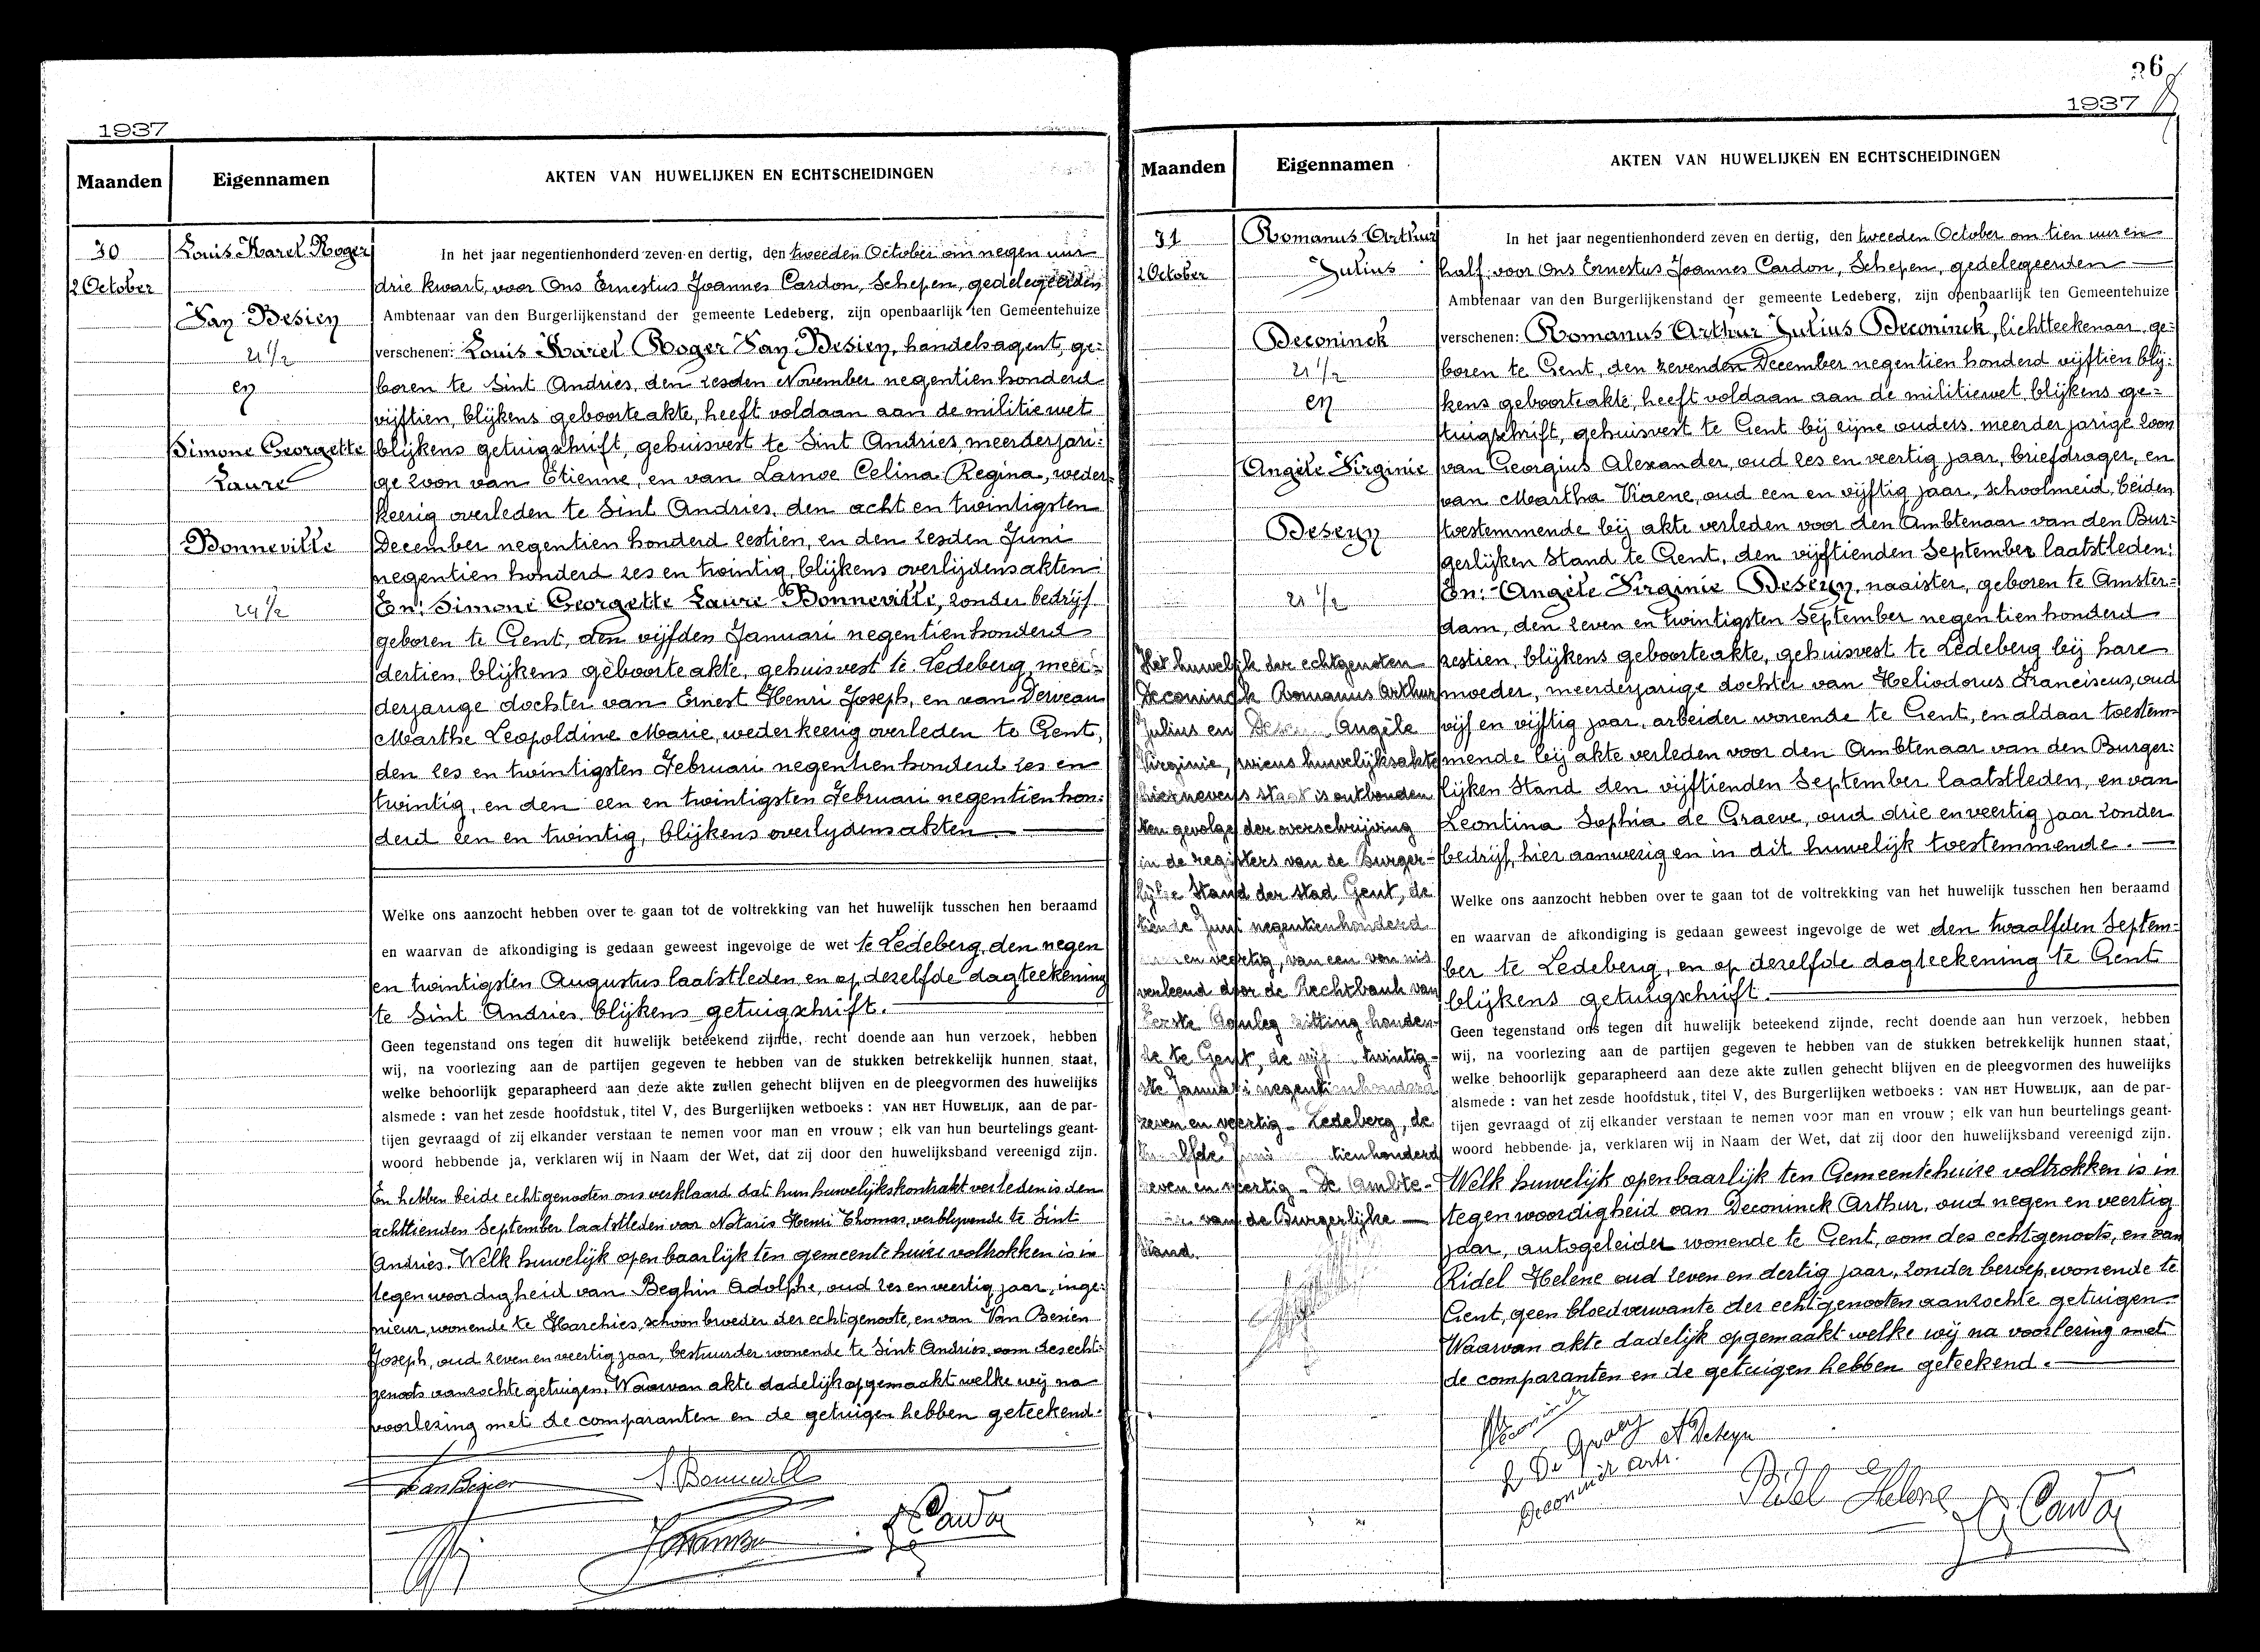 1937
Maanden
Eigennamen
AKTEN VAN HUWELIJKEN EN ECHTSCHEIDINGEN
30
2 October
Louis Karel Roger
Van Besien
21 1/2
en
Simone Georgette
Laure
Bonneville
24 1/2
In het jaar negentienhonderd zeven en dertig, den tweeden October om negen uur
drie kwart, voor Ons Ernestus Joannes Cardon, Schepen, gedelegeerden
Ambtenaar van den Burgerlijkenstand der gemeente Ledeberg, zijn openbaarlijk ten Gemeentehuize
verschenen: Louis Karel Roger Van Besien, handelsagent, ge=
boren te Sint Andries, den zesden November negentien honderd
vijftien, blijkens geboorteakte, heeft voldaan aan de militiewet
blijkens getuigschrift, gehuisvest te Sint Andries, meerderjari=
ge zoon van Etienne, en van Larnoe Celina Regina, weder=
keerig overleden te Sint Andries, den acht en twintigsten
December negentien honderd zestien, en den zesden Juni
negentien honderd zes en twintig, blijkens overlijdensakten
En: Simone Georgette Laure Bonneville, zonder bedrijf
geboren te Gent, den vijfden Januari negentien honderd
dertien, blijkens geboorteakte, gehuisvest te Ledeberg, meer=
derjarige dochter van Ernest Henri Joseph, en van Derveau
Marthe Leopoldine Marie, wederkeerig overleden te Gent,
den zes en twintigsten Februari negentien honderd zes en
twintig, en den een en twintigsten Februari negentien hon=
derd een en twintig, blijkens overlydensakten
Welke ons aanzocht hebben over te gaan tot de voltrekking van het huwelijk tusschen hen beraamd
en waarvan de afkondiging is gedaan geweest ingevolge de wet te Ledeberg, den negen
en twintigsten Augustus laatstleden en op dezelfde dagteekening
te Sint Andries blijkens getuigschrift.
Geen tegenstand ons tegen dit huwelijk beteekend zijnde, recht doende aan hun verzoek, hebben
wij, na voorlezing aan de partijen gegeven te hebben van de stukken betrekkelijk hunnen staat,
welke behoorlijk geparapheerd aan deze akte zullen gehecht blijven en de pleegvormen des huwelijks
alsmede : van het zesde hoofdstuk, titel V, des Burgerlijken wetboeks : VAN HET HUWELIJK, aan de par-
tijen gevraagd of zij elkander verstaan te nemen voor man en vrouw ; elk van hun beurtelings geant-
woord hebbende ja, verklaren wij in Naam der Wet, dat zij door den huwelijksband vereenigd zijn.
En hebben beide echtgenooten ons verklaard dat hun huwelijkskontrakt verleden is den
achttienden September laatstleden voor Notaris Henri Thomas, verblyvende te Sint
Andries. Welk huwelijk openbaarlijk ten gemeentehuize voltrokken is in
tegenwoordigheid van Beghin Adolphe, oud zes en veertig jaar, inge=
nieur, wonende te Harchies, schoonbroeder der echtgenoote, en van Van Besien
Joseph, oud zeven en veertig jaar, bestuurder wonende te Sint Andries, oom des echt=
genoots aanzochte getuigen. Waarvan akte dadelijk opgemaakt welke wij na
voorlezing met de comparanten en de getuigen hebben geteekend.
VanBesien
S. Bonneville
Cardon
26
1937
Maanden
Eigennamen
AKTEN VAN HUWELIJKEN EN ECHTSCHEIDINGEN
31
2 October
Romanus Arthur
Julius
Deconinck
21 1/2
en
Angèle Virginie
Deseyn
21 1/2
Het huwelijk der echtgenoten
Deconinck Romanus Arthur
Julius en Angèle
Virginie, wiens huwelijksakte
hiernevens staat is ontbonden
ten gevolge der overschrijving
in de registers van de Burger-
lijke Stand der stad Gent, de
tiende Juni negentienhonderd
en veertig, van een vonnis
verleend door de Rechtbank van
Eerste Aanleg zitting houden-
de te Gent, de twintig-
ste Januari negentienhonderd
zeven en veertig - Ledeberg, de
tienhonderd
zeven en veertig - De Ambte-
van de Burgerlijke
Stand.
In het jaar negentienhonderd zeven en dertig, den tweeden October om tien uur en
half voor Ons Ernestus Joannes Cardon, Schepen, gedelegeerden
Ambtenaar van den Burgerlijkenstand der gemeente Ledeberg, zijn openbaarlijk ten Gemeentehuize
verschenen: Romanus Arthur Julius Deconinck, lichtteekenaar, ge=
boren te Gent, den zevenden December negentien honderd vijftien blij=
kens geboorteakte, heeft voldaan aan de militiewet blijkens ge=
tuigschrift, gehuisvest te Gent bij zijne ouders, meerderjarige zoon
van Georgius Alexander, oud zes en veertig jaar, briefdrager, en
van Martha Viaene, oud een en vijftig jaar, schoolmeid, beiden
toestemmende bij akte verleden voor den Ambtenaar van den Bur=
gerlijken Stand te Gent, den vijftienden September laatstleden:
En: Angèle Virginie Deseyn, naaister, geboren te Amster=
dam, den zeven en twintigsten September negentien honderd
zestien, blijkens geboorteakte, gehuisvest te Ledeberg bij hare
moeder, meerderjarige dochter van Heliodorus Franciscus, oud
vijf en vijftig jaar, arbeider wonende te Gent, en aldaar toestem=
mende bij akte verleden voor den Ambtenaar van den Burger=
lijken Stand den vijftienden September laatstleden, en van
Leontina Sophia de Graeve, oud drie en veertig jaar zonder
bedrijf, hier aanwezig en in dit huwelijk toestemmende.
Welke ons aanzocht hebben over te gaan tot de voltrekking van het huwelijk tusschen hen beraamd
en waarvan de afkondiging is gedaan geweest ingevolge de wet den twaalfden Septem=
ber te Ledeberg, en op dezelfde dagteekening te Gent
blijkens getuigschrift.
Geen tegenstand ons tegen dit huwelijk beteekend zijnde, recht doende aan hun verzoek, hebben
wij, na voorlezing aan de partijen gegeven te hebben van de stukken betrekkelijk hunnen staat,
welke behoorlijk geparapheerd aan deze akte zullen gehecht blijven en de pleegvormen des huwelijks
alsmede : van het zesde hoofdstuk, titel V, des Burgerlijken wetboeks : VAN HET HUWELIJK, aan de par-
tijen gevraagd of zij elkander verstaan te nemen voor man en vrouw ; elk van hun beurtelings geant-
woord hebbende ja, verklaren wij in Naam der Wet, dat zij door den huwelijksband vereenigd zijn.
Welk huwelijk openbaarlijk ten Gemeentehuize voltrokken is in
tegenwoordigheid van Deconinck Arthur, oud negen en veertig
jaar, autogeleider wonende te Gent, oom des echtgenoots, en van
Ridel Helene oud zeven en dertig jaar, zonder beroep, wonende te
Gent, geen bloedverwante der echtgenooten aanzochte getuigen
Waarvan akte dadelijk opgemaakt welke wij na voorlezing met
de comparanten en de getuigen hebben geteekend.
A Deseyn
L De Graev
Deconinck Arth.
Ridel Helene
Cardon